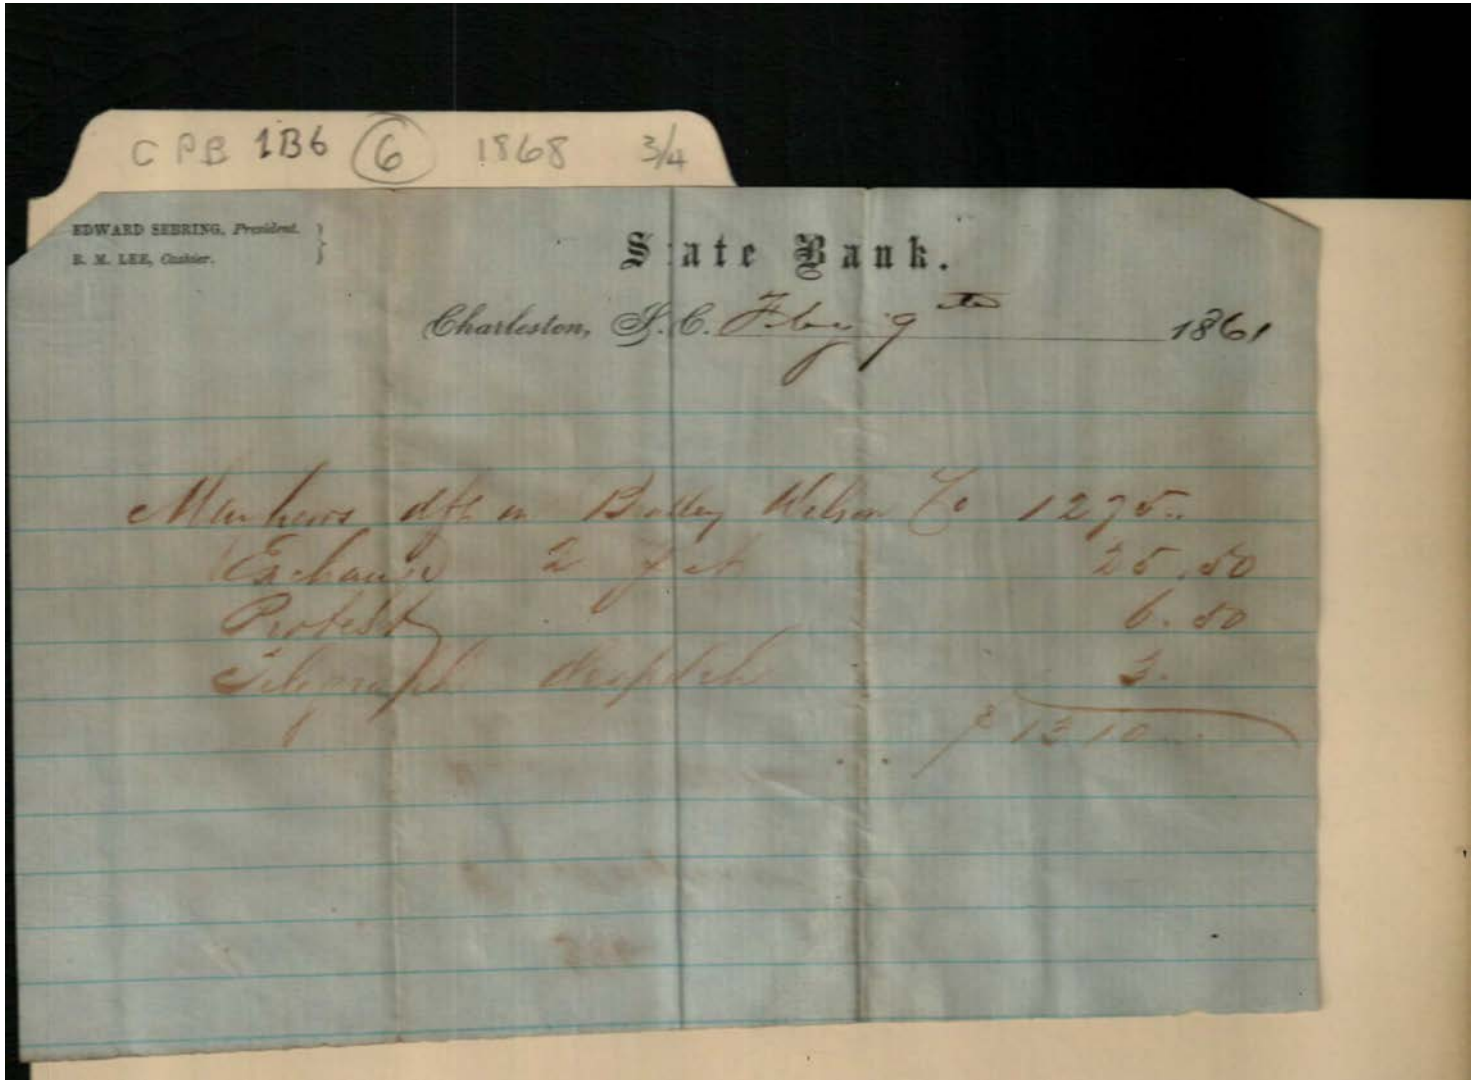 C P B 1B6 6 1868 3/4
EDWARD SEBRING, President.
R. M. LEE, Cashier.
State Bank.
Charleston, S. C. Feby 9th 1861
dft on Bradley Wilson Co 1275..
Exchange 2 p ct 25.50
Protest 6.50
Telegraph despatch 3.
$ 1310